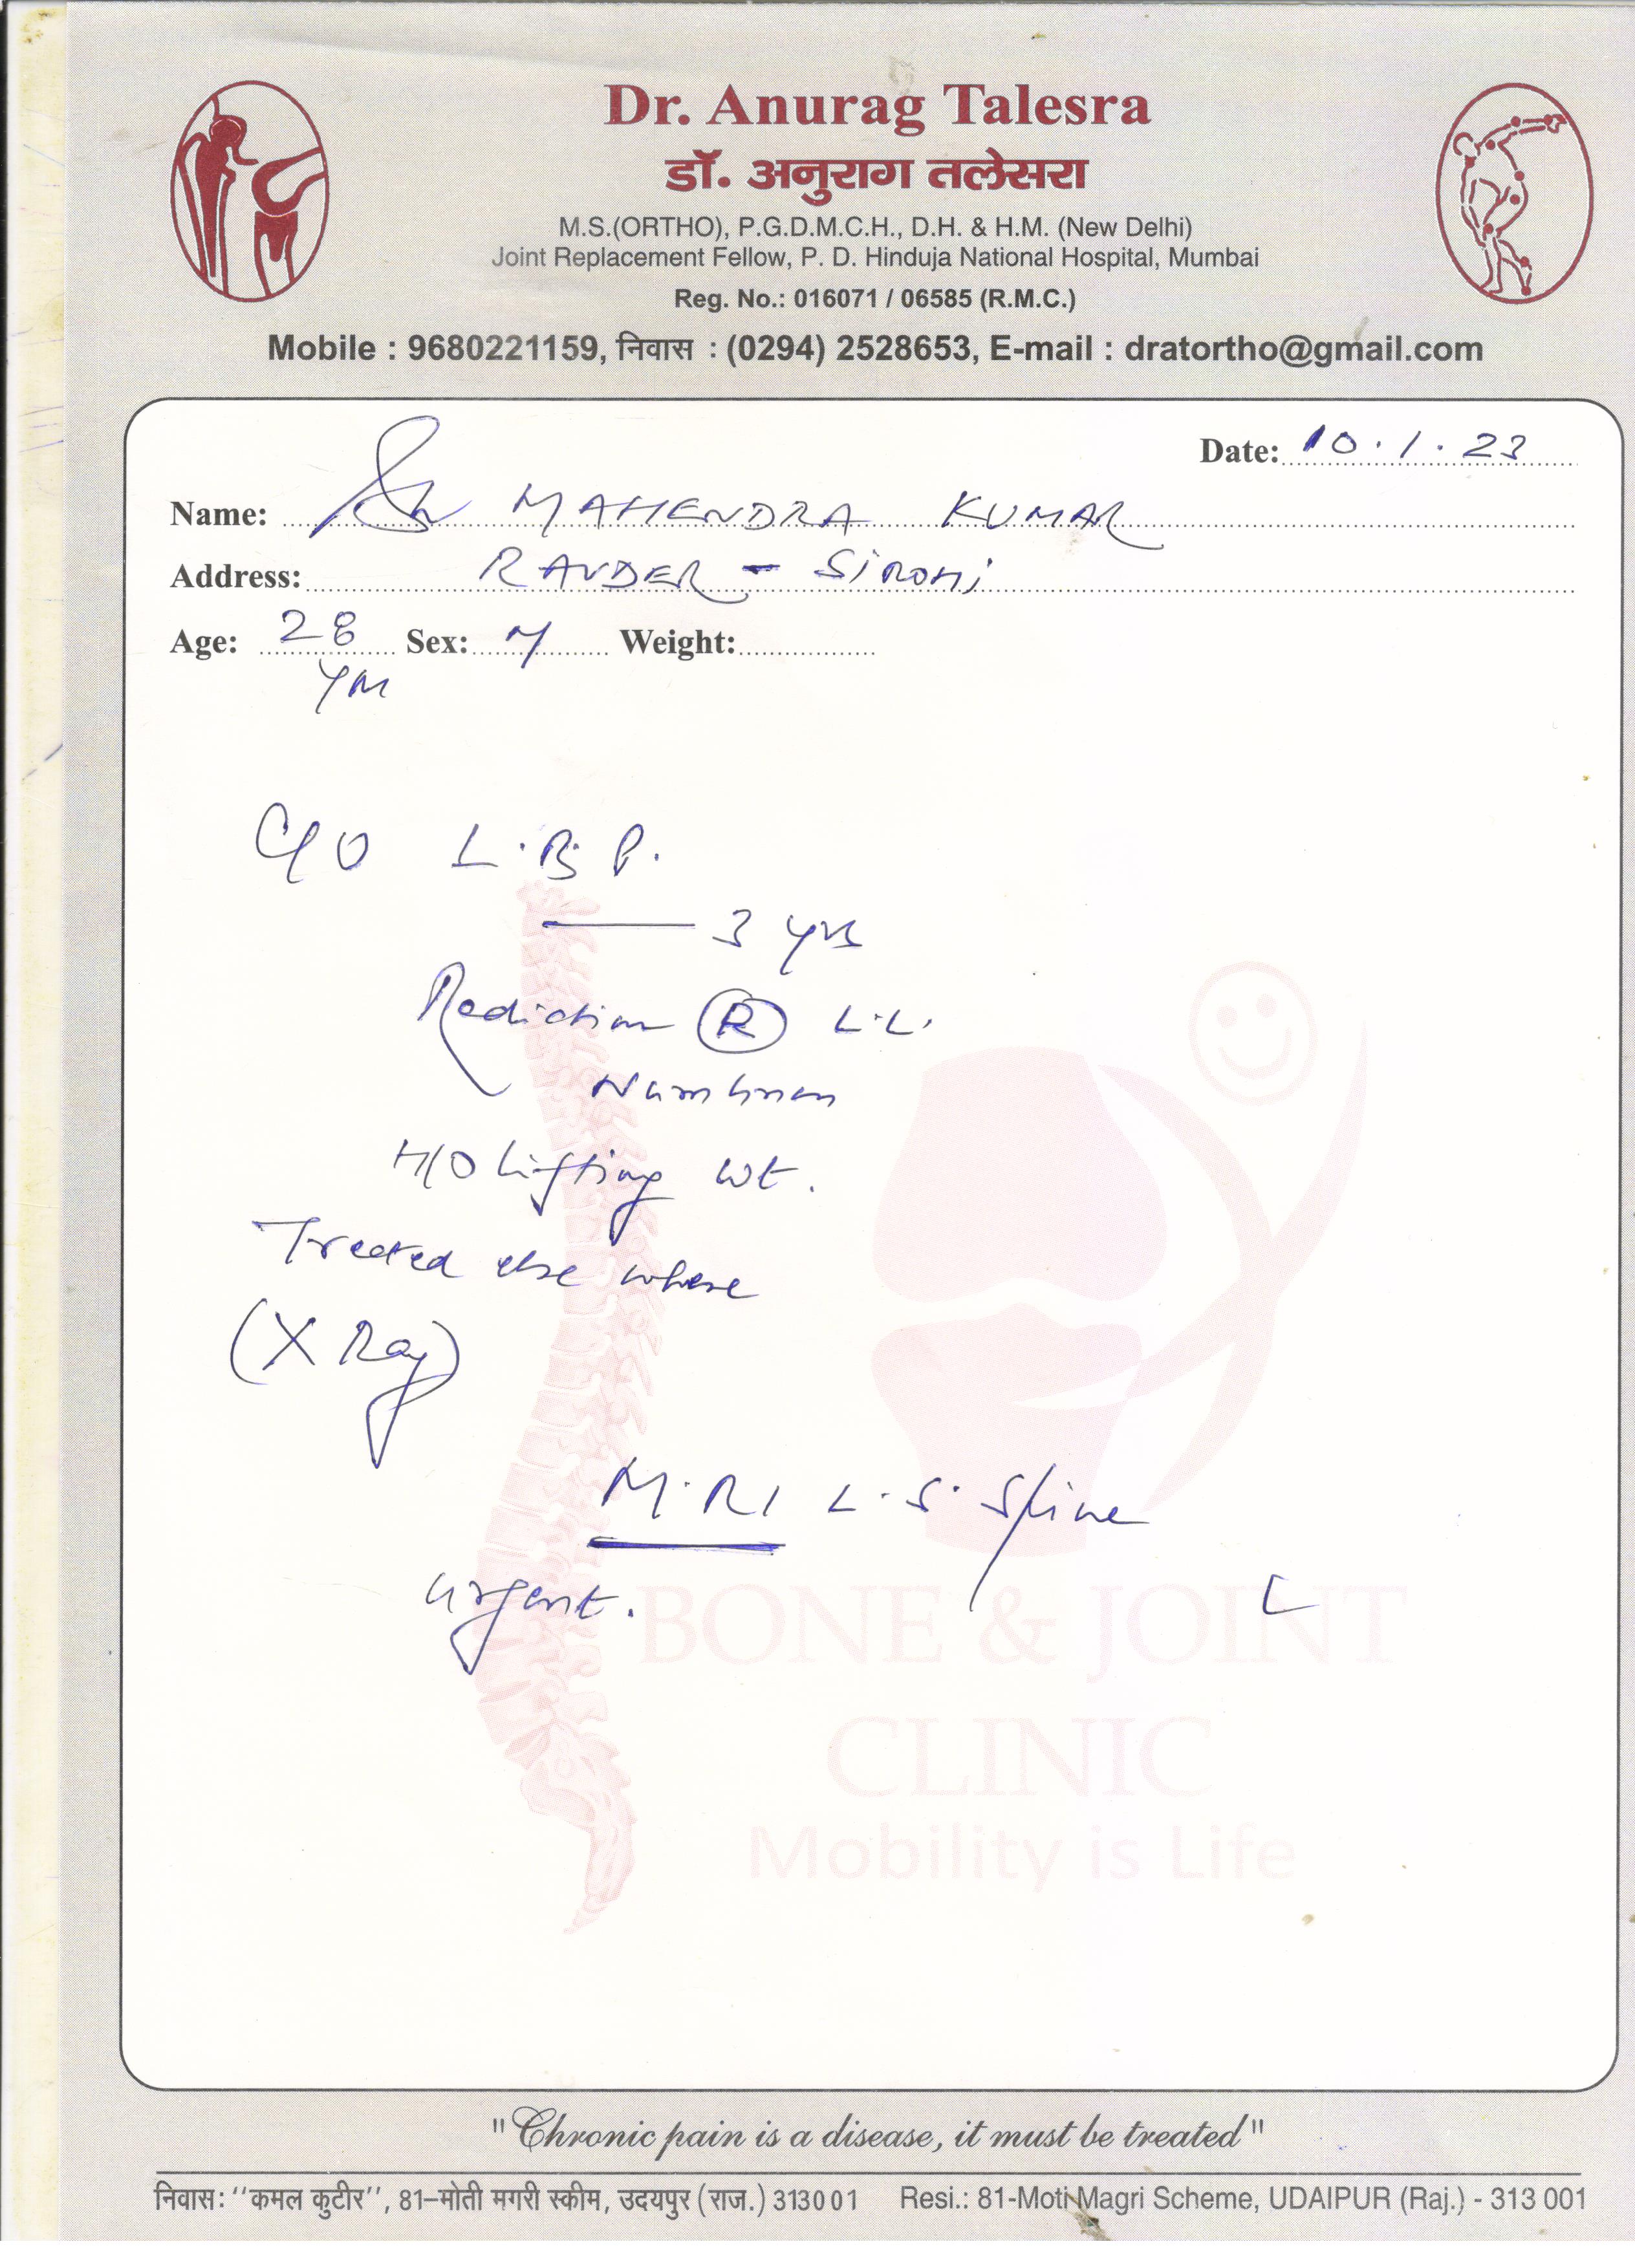 Dr. Anurag Talesra
डॉ. अनुराग तलेसरा
M.S.(ORTHO), P.G.D.M.C.H., D.H. & H.M. (New Delhi)
Joint Replacement Fellow, P. D. Hinduja National Hospital, Mumbai
Reg. No.: 016071 / 06585 (R.M.C.)
Mobile : 9680221159, निवास : (0294) 2528653, E-mail : dratortho@gmail.com
Date: 10.1.23
Name: MAHENDRA KUMAR
Address: - SIROHI
Age: 28 Sex: M Weight:
C/O L.B.P.
3 yrs
Radiation R L.L.
Numbness
H/O Lifting wt.
Treated else where
(X Ray)
M.RI L.S. Spine
urgent. L
BONE & JOINT
CLINIC
Mobility is Life
"Chronic pain is a disease, it must be treated"
निवास: "कमल कुटीर", 81-मोती मगरी स्कीम, उदयपुर (राज.) 313001 Resi.: 81-Moti Magri Scheme, UDAIPUR (Raj.) - 313 001